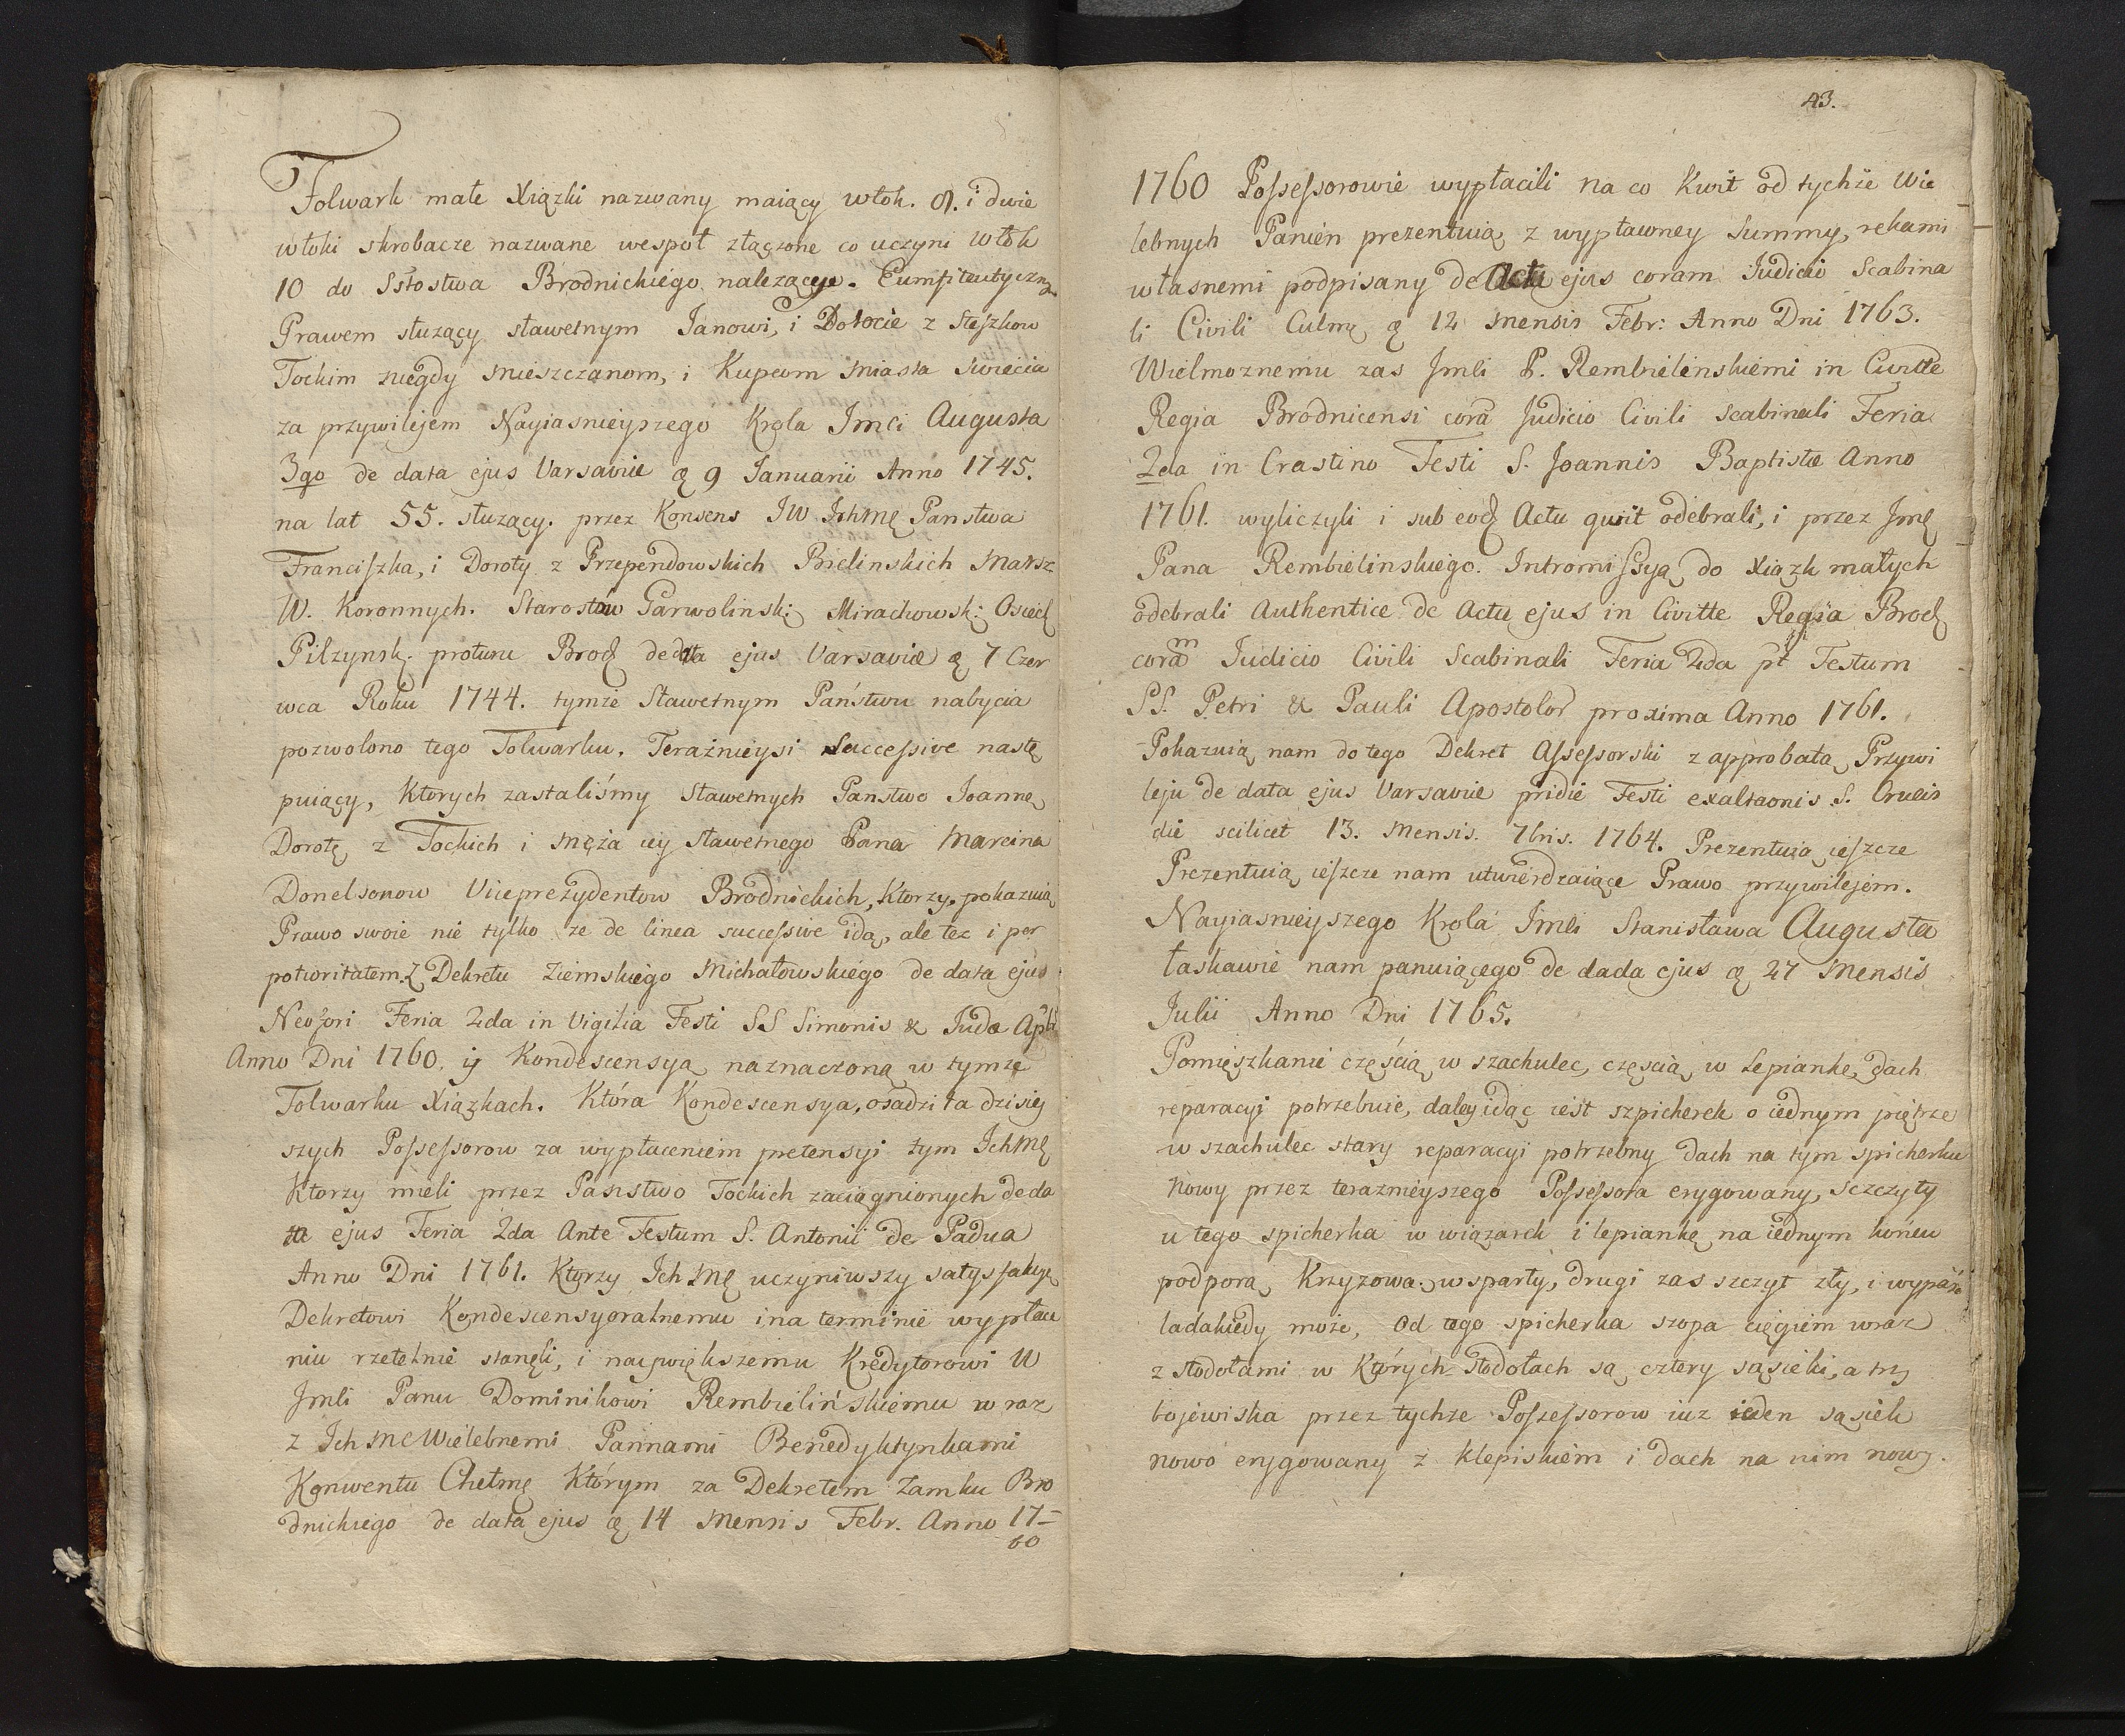 Folwark małe Xiązki nazwany maiący włok. 8. i dwie
włoki skrobacze nazwane wespoł złączone co uczyni włok
10 do Ssłostwa Brodnickiego należące. Eumfiteutyczny
Prawem służący sławetnym Janowi, i Dorocie z Steszkow
Tockim niegdy Mieszczanom, i Kupcom Miasta Swiecia
za przywilejem Nayiasnieyszego Krola Jmci Augusta
3go de data ejus Varsavie ę 9 Januarii Anno 1745.
na lat 55. służący. przez Konsens JW Ichmę Panstwa
Franciszka, i Doroty z Przependowskich Bielinskich Marsz
W. Koronnych. Starostow Garwolinsk: Mirachowsk: Osieck
Pilzynsk. proturu Brod dedata ejus Varsavie ę 7 Czer
wca Roku 1744. tymże Sławetnym Państwu nabycia
pozwolono tego Folwarku. Teraźnieysi Successive nastę
puiący, Ktorych zastaliśmy Sławetnych Panstwo Joannę
Dorotę z Tockich i męża iey sławetnego Pana Marcina
Donelsonow Viceprezydentow Brodnickich, Ktorzy pokazuią
Prawo swoie nie tylko że de linea successive idą, ale też i per
potioritatem. Z Dekretu Ziemskiego Michałowskiego de data ejus
Neofori Feria 2da in Vigilia Festi SS Simonis & Juda Apli
Anno Dni 1760. iż Kondescensyą naznaczoną w tymże
Folwarku Xiązkach. Która Kondescensya, osadziła dzisiey
szych Possessorow za wypłaceniem pretensyi tym Ichmę
Ktorzy mieli przez Państwo Tockich zaciągnionych deda
ta ejus Feria 2da Ante Festum S. Antonii de Padua
Anno Dni 1761. Ktorzy Ich Mę uczyniwszy satysfakcyę
Dekretowi Kondescensyoralnemu i na terminie wypłace
niu rzetelnie stanęli, i naywiększemu Kredytorowi W
Jmli Panu Dominikowi Rembielińskiemu wraz
z Ich MC Wielebnemi Pannami Benedyktynkami
Konwentu Chełmę Którym za Dekretem Zamku Bro
dnickiego de data ejus ę 14 Mensis Febr. Anno 17-
60
43.
1760 Possessorowie wypłacili na co Kwit od tychże Wie
lebnych Panien prezentuią z wypławney Summy, rekami
własnemi podpisany de Actu ejus coram Judicio Scabina
li Civili Culmę ę 12 Mensis Febr: Anno Dni 1763.
Wielmoznemu zas Jmli P. Rembielenskiemi in Civitte
Regia Brodnicensi corã Judicio Civili Scabinali Feria
2da in Crastino Festi S. Joannis Baptistæ Anno
1761. wyliczyli i sub eod Actu quit odebrali, i przez Jmę
Pana Rembielinskiego. Intromissyą do Xiązk małych
odebrali Authentice de Actu ejus in Civitte Regia Brod
coram Judicio Civili Scabinali Feria 2da pt Festum
SS. Petri & Pauli Apostolor proxima Anno 1761.
Pokazuią nam do tego Dekret Assessorski z approbatą Przywi
leju de data ejus Varsavie pridie Festi exaltaonis S. Crucis
die scilicet 13. Mensis. 7bris. 1764. Prezentuią ieszcze
Prezentuią ieszcze nam utwierdzaiące Prawo przywilejem.
Nayiasnieyszego Krola Jmli Stanisława Augusta
łaskawie nam panuiącego de dada ejus ę 27 Mensis
Julii Anno Dni 1765.
Pomieszkanie częścią w szachulec, częscią w Lepiankę, dach
reparacyi potrzebuie, daley idąc iest szpicherek o iednym piętrze
w szachulec stary reparacyi potrzebny dach na tym spicherku
nowy przez terazmieyszego Possessora erygowany, Szczyty
u tego spicherka w wiązarek i lepiankę na iednym końcu
podporą Krzyzową wsparty, drugi zas szczyt zły, i wypaść
ladakiedy może, Od tego spicherka szopa cięgiem wraz
z stodołami w Których stodołach są cztery sąsieki, a trzy
bojewiska przez tychże Possessorow iuz ieden sąsiek
nowo erygowany z klepiskiem i dach na nim nowy.